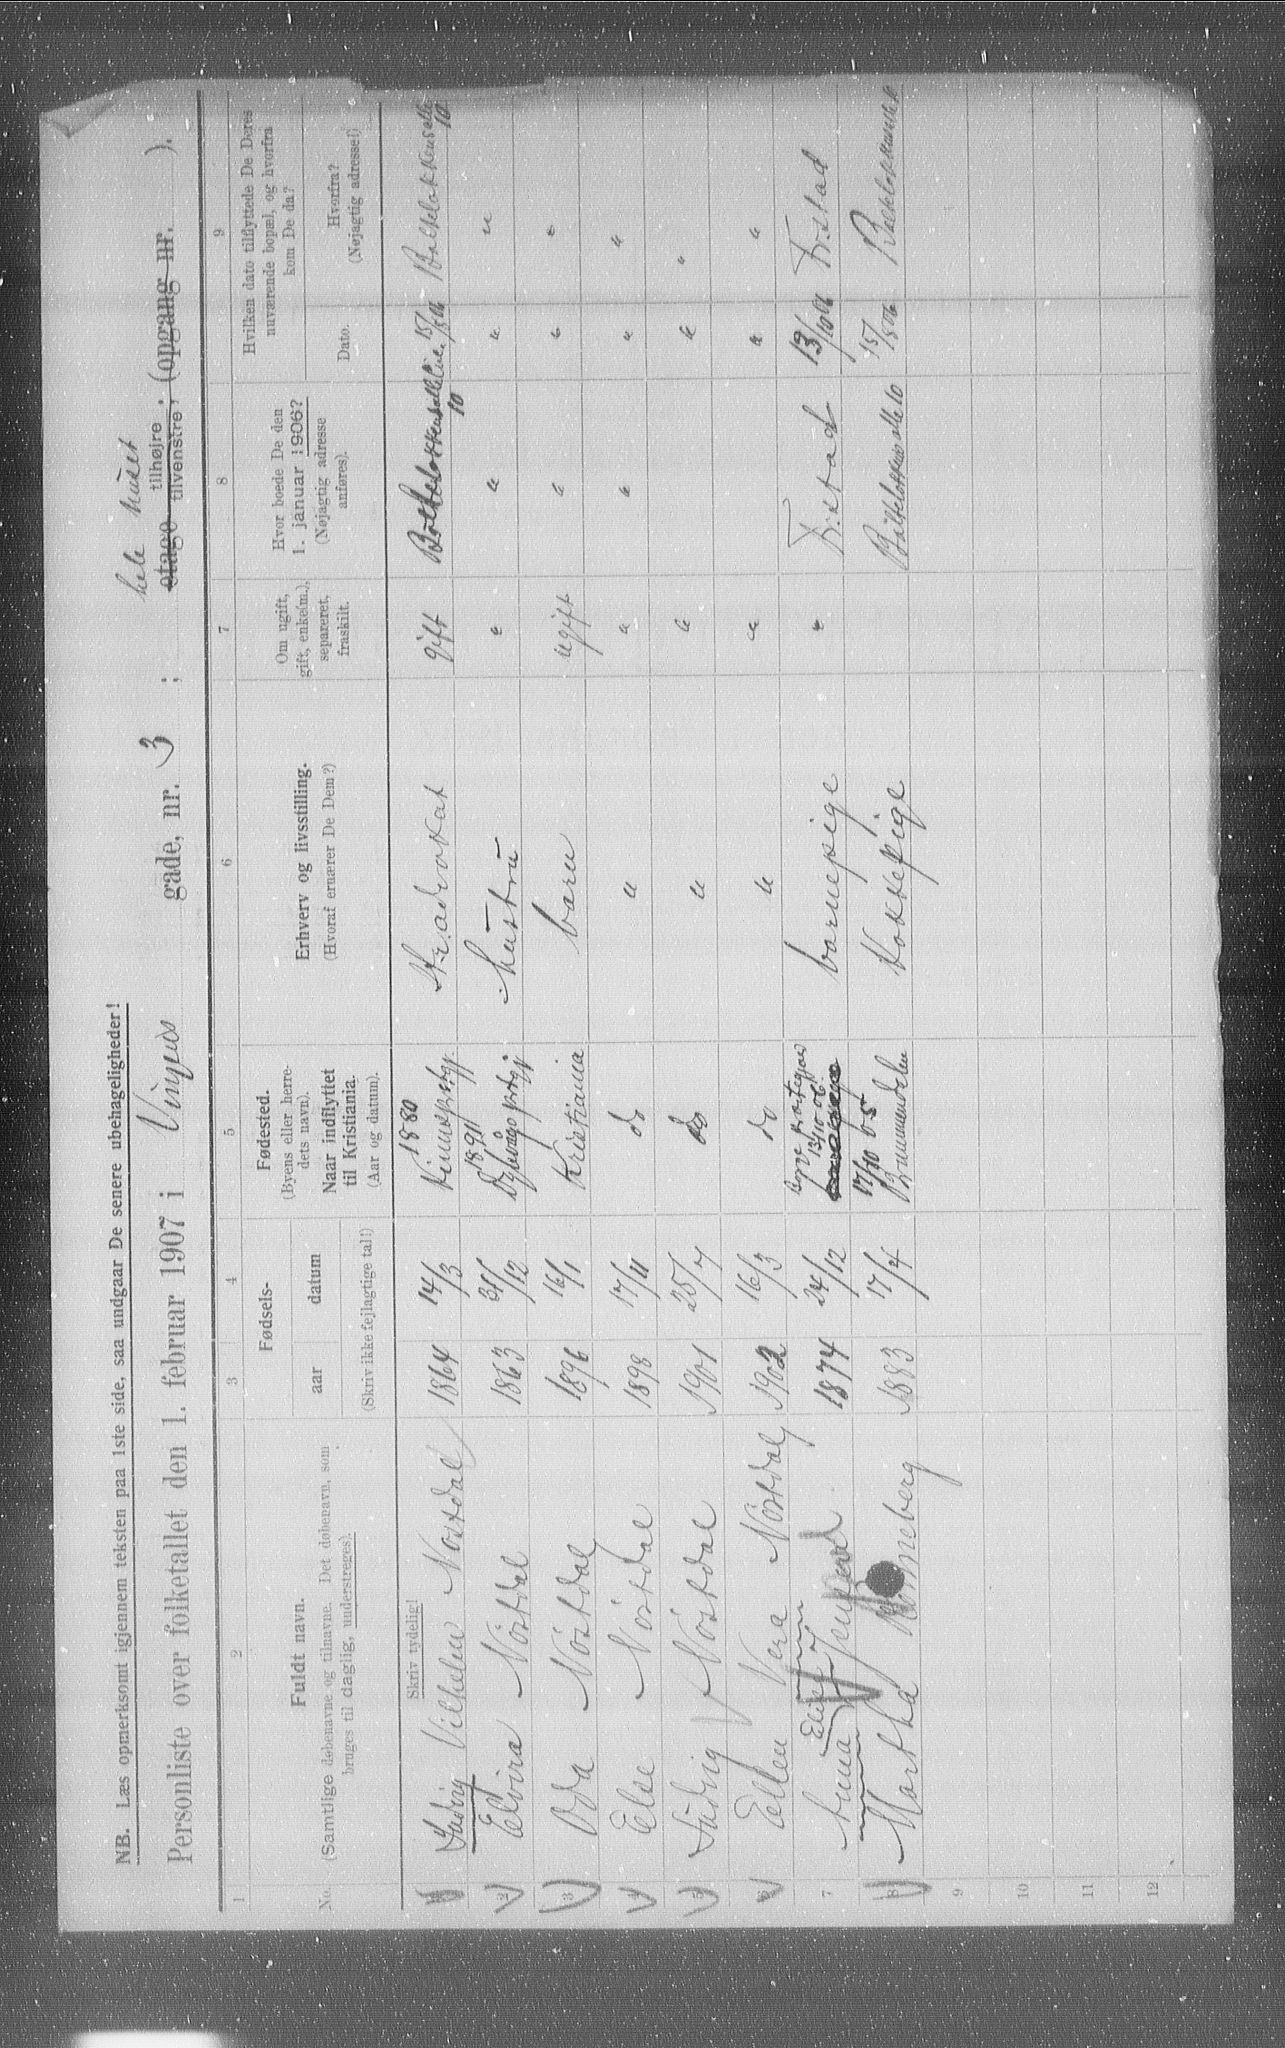 NB. Læs opmerksomt igjennem teksten paa 1ste side, saa undgaar De senere ubehageligheder!
hele huset
Personliste over folketallet den 1. februar 1907 i Vinjes gade, nr. 3 ; etage tilhøjre tilvenstre; (opgang nr. ).
1 2 3 4 5 6 7 8 9
No. Fuldt navn. (Samtlige døbenavne og tilnavne. Det døbenavn, som bruges til daglig, understreges).
Fødsels- aar datum
(Skriv ikke fejlagtige tal!)
Fødested. (Byens eller herredets navn). Naar indflyttet til Kristiania. (Aar og datum).
Erhverv og livsstilling. (Hvoraf ernærer De Dem?)
Om ugift, gift, enke(m.), separeret, fraskilt.
Hvor boede De den 1. januar 1906? (Nøjagtig adresse anføres).
Hvilken dato tilflyttede De Deres nuværende bopæl, og hvorfra kom De da?
Dato. Hvorfra? (Nøjagtig adresse!)
Skriv tydelig!
1 Ludvig Vilhelm Nostdal 1864 14/3 1880 gift 10 15/ 10
2 Elvira Nöstdal 1863 31/12 1891 hustru " " " "
3 Oda Nöstdal 1896 16/1 Kristiania barn ugift " " "
4 Else Nöstdal 1898 17/11 do " " " " "
5 Ludvig Nöstdal 1901 25/7 do " " " "
6 Ellen Vera Nöstdal 1902 16/3 do " " " "
7 Anna Elise Jensen 1874 24/12 13/10 06 barnepige " Fr.stad 13/10 06 Fr.stad
8 Martha 1883 17/4 17/10 05 Brummundalen kokkepige 15/
9
10
11
12